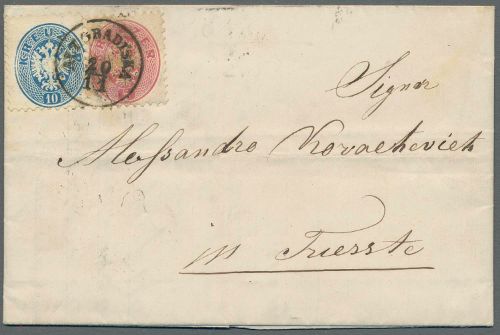 KREUZER
10
GRADISKA
20
11
Signor
Alessandro Kovachevich
in Trieste